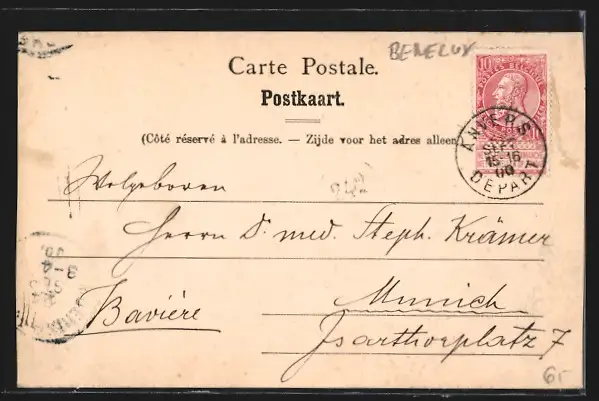 BENELUX
Carte Postale.
Postkaart.
(Côté réservé à l'adresse. — Zijde voor het adres alleen
10
POSTES BELGIQUE
ANVERS
SEPT
15-16
00
DEPART
Wolgeboren
Herrn Dr. med. Steph. Krämer
Munich
Bavière
Isarthorplatz 7
3-4
6,-